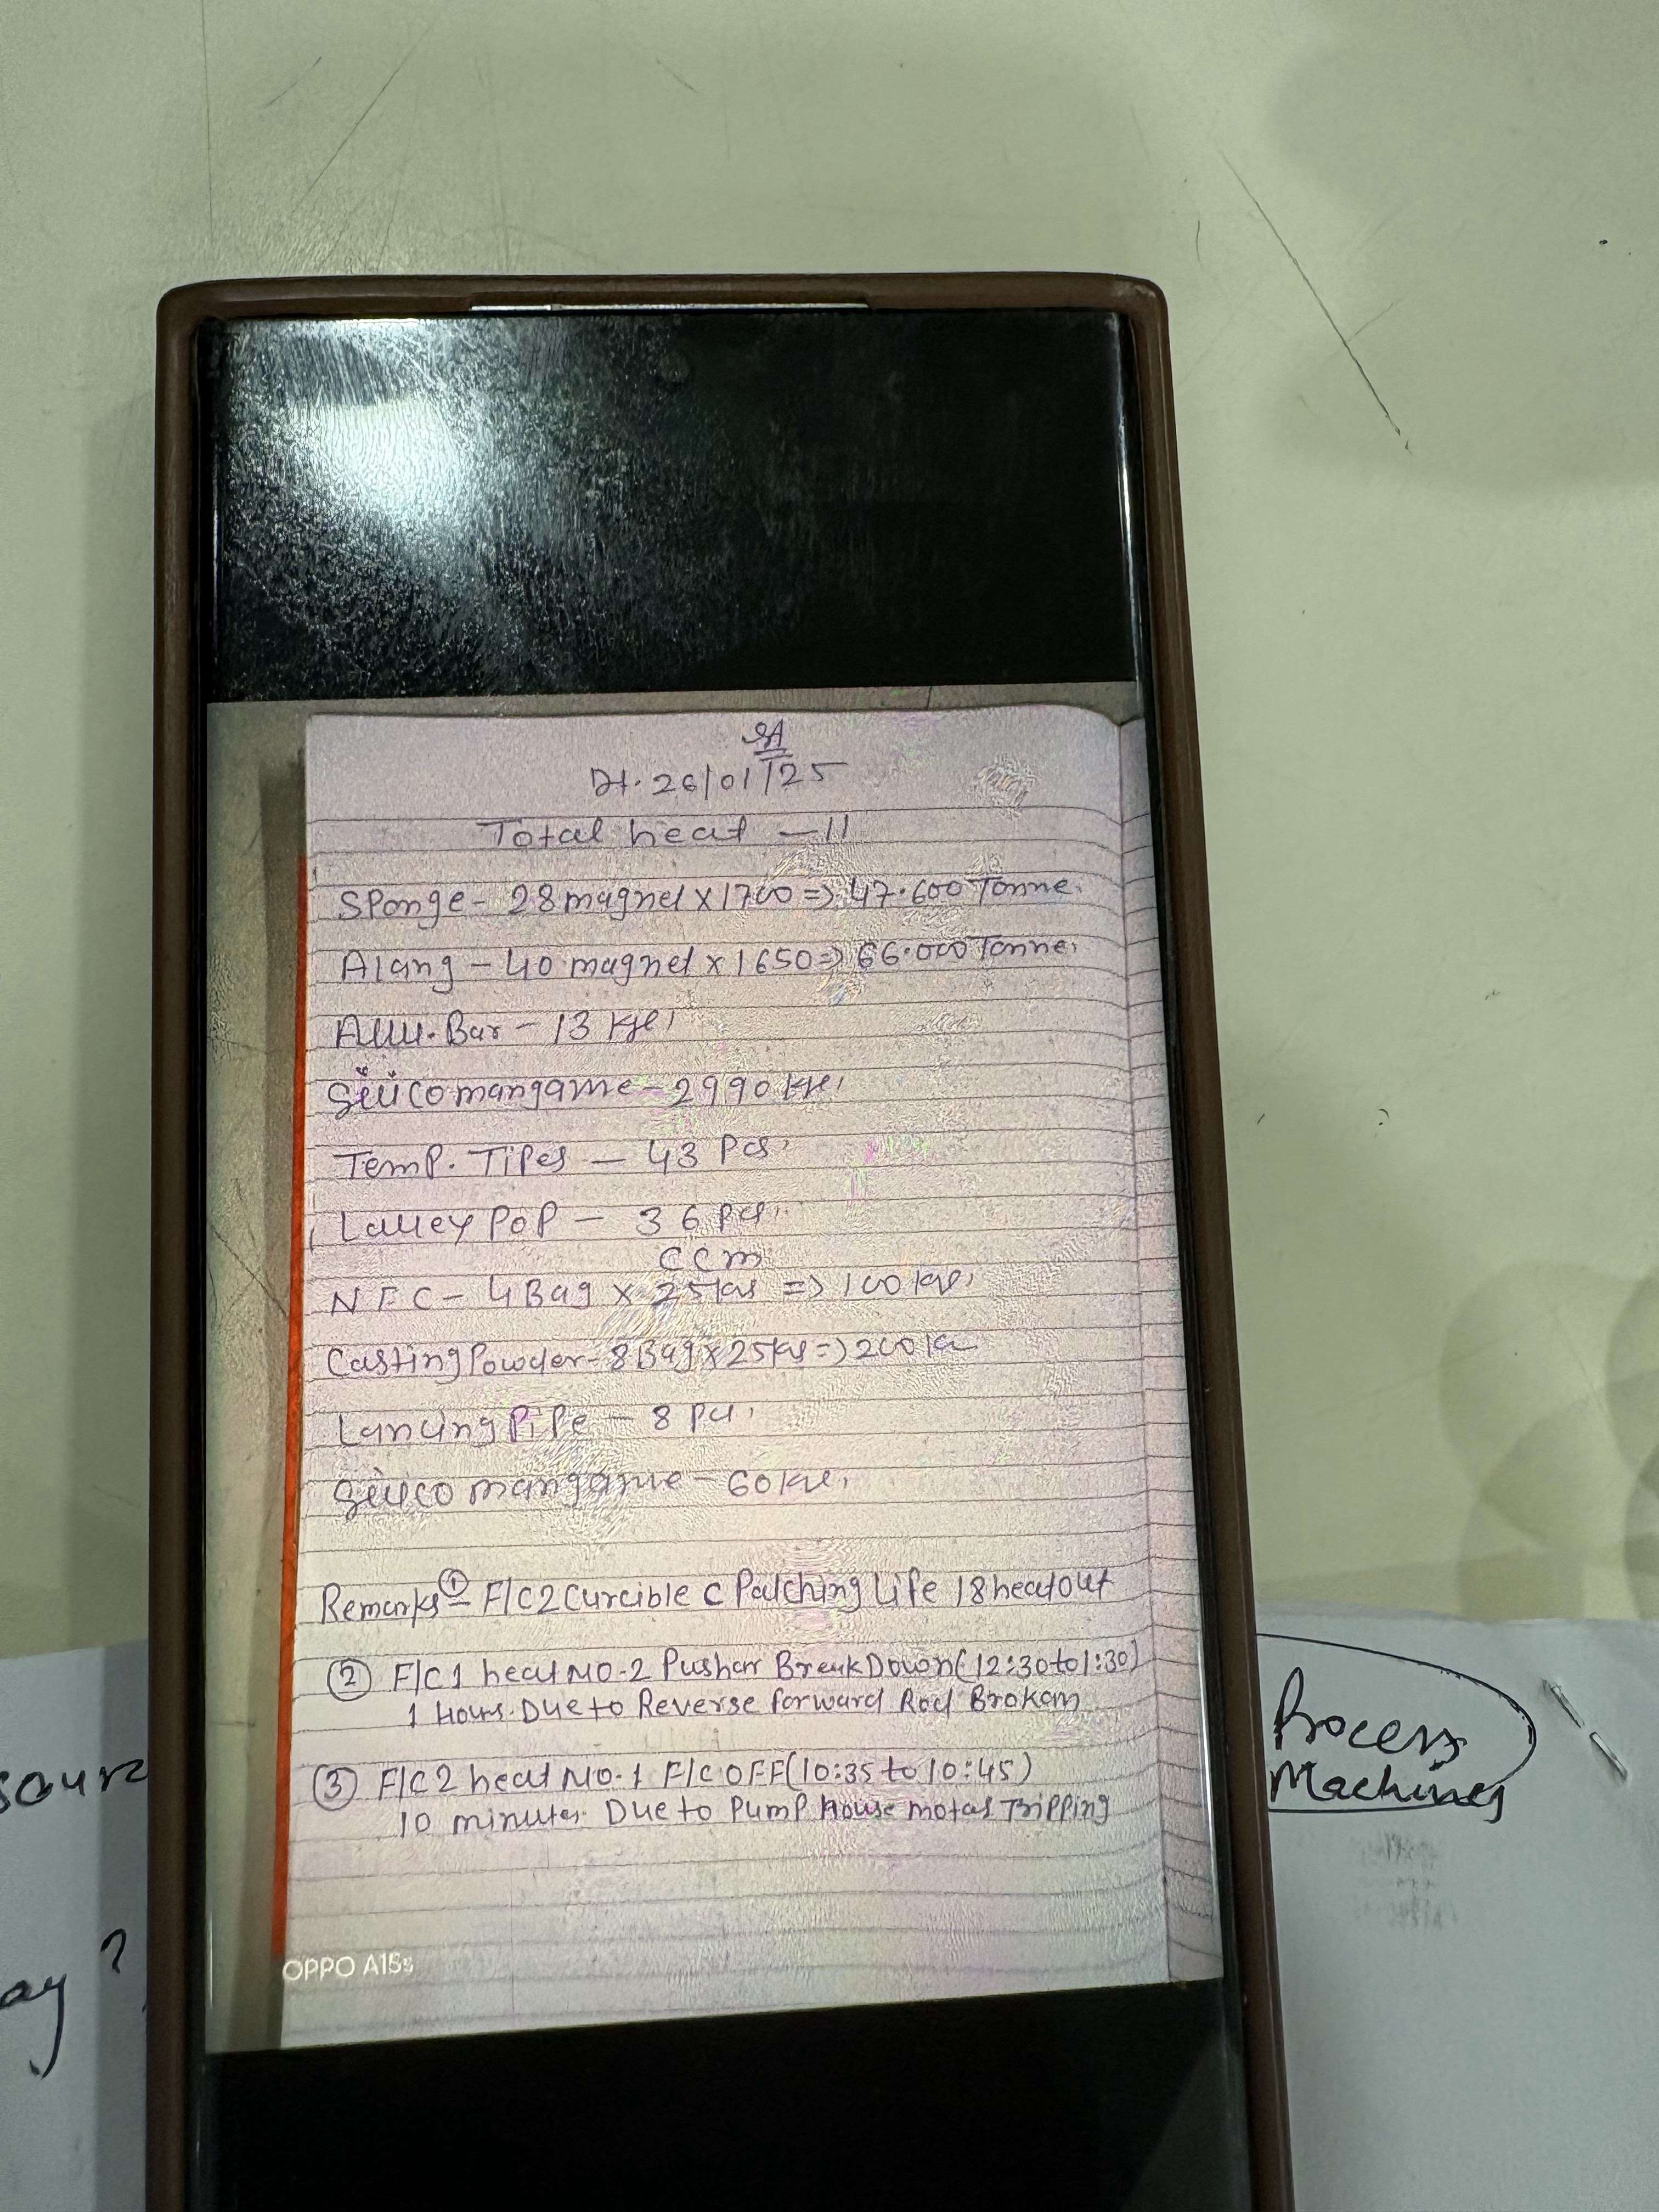 SA
Dt. 26/01/25
Total heat - 11
Sponge - 28 magnet x 1700 => 47.600 Tonne.
Alang - 40 magnet x 1650 => 66.000 Tonne.
Allu. Bar - 13 kge
Silicomanganne - 2990 kge
Temp. Tipes - 43 Pcs
Lalleypop - 36 pcs
CCM
NFC - 4 Bag x 25 kgs => 100 kge
Casting Powder - 8 Bag x 25 kgs => 200 kg
Lancing Pipe - 8 pcs
Silico manganne - 60 kge
Remarks ① - F/C2 Curcible C Patching Life 18 heat out
② F/C1 heat NO-2 Pushar Break Down (12:30 to 1:30)
1 Hours. Due to Reverse forward Rod Brokam
③ F/C2 heat NO-1 F/C OFF (10:35 to 10:45)
10 minutes Due to Pump House motas Tripping
OPPO A15s
Process
Machines
sourc
ay?